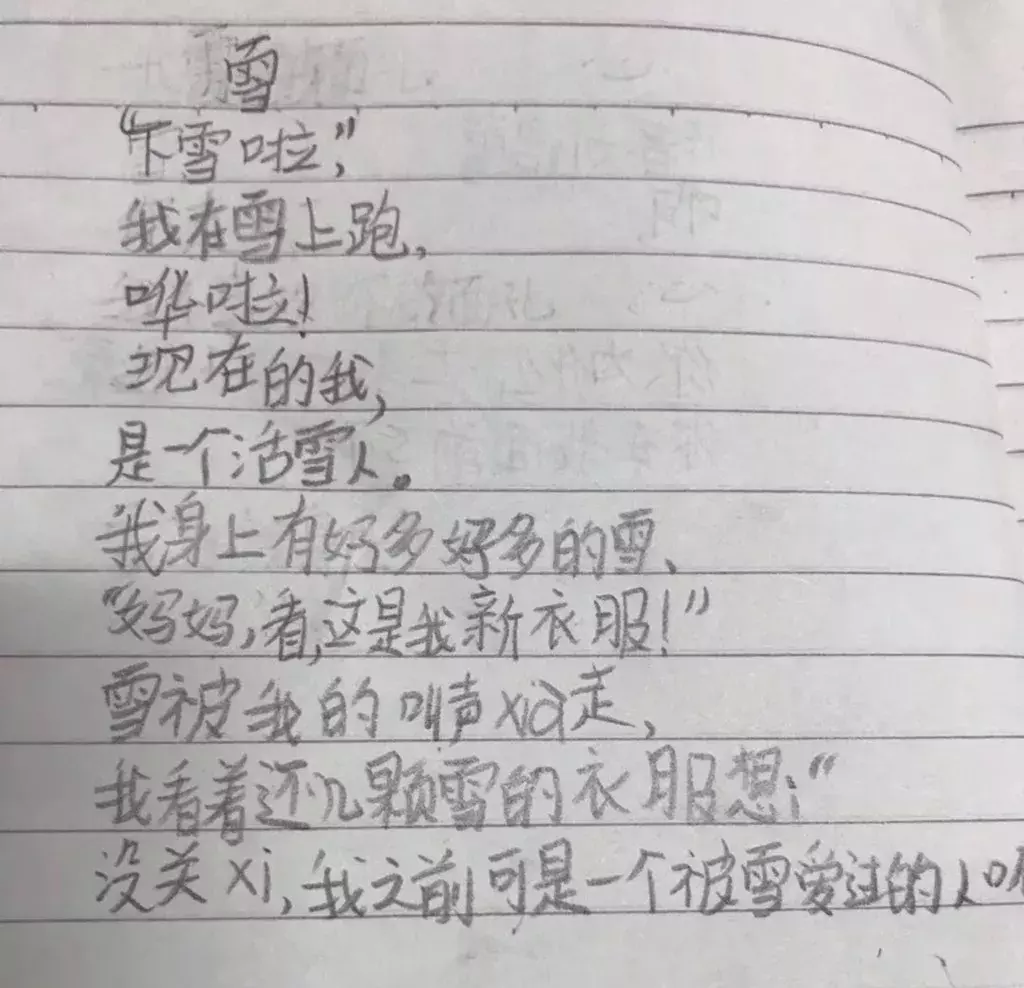 雪
“下雪啦,”
我在雪上跑,
哗啦!
现在的我,
是一个活雪人。
我身上有好多好多的雪、
“妈妈,看,这是我新衣服!”
雪被我的叫声xià走,
我看着还几颗雪的衣服想:“
没关xi,我之前可是一个被雪爱过的人